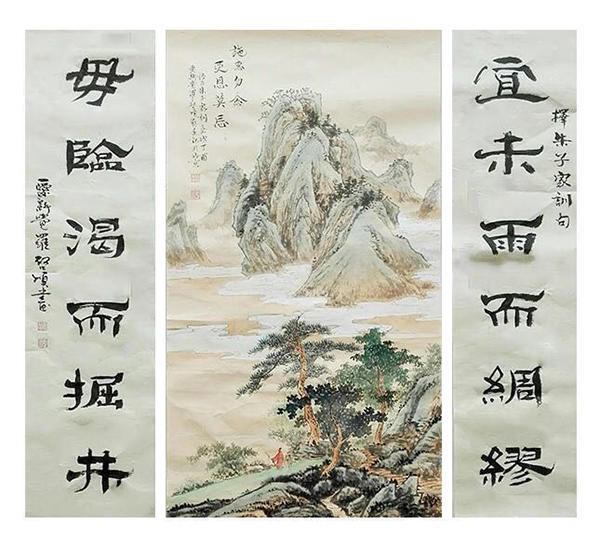 擇朱子家訓句
宜未雨而綢繆
施惠勿念
受恩莫忘
毋臨渴而掘井
愛新覺羅